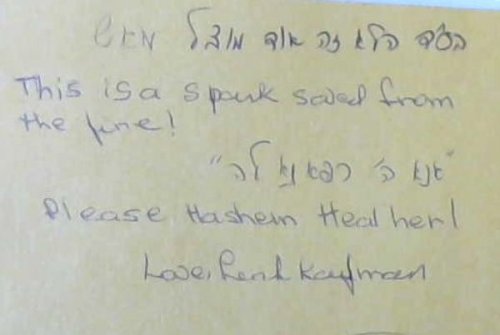 הלא זה אוד מוצל מאש
This is a spark saved from
the fire!
"אנא ה' רפא נא לה"
Please Hashem Heal her!
Love, Kaufman